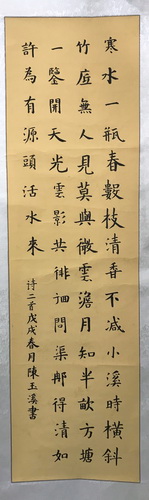 寒水一瓶春數枝清香不減小溪時橫斜
竹底無人見莫與微雲澹月知半畝方塘
一鑒開天光雲影共徘徊問渠那得清如
許為有源頭活水來
詩二首戊戌春月陳玉溪書